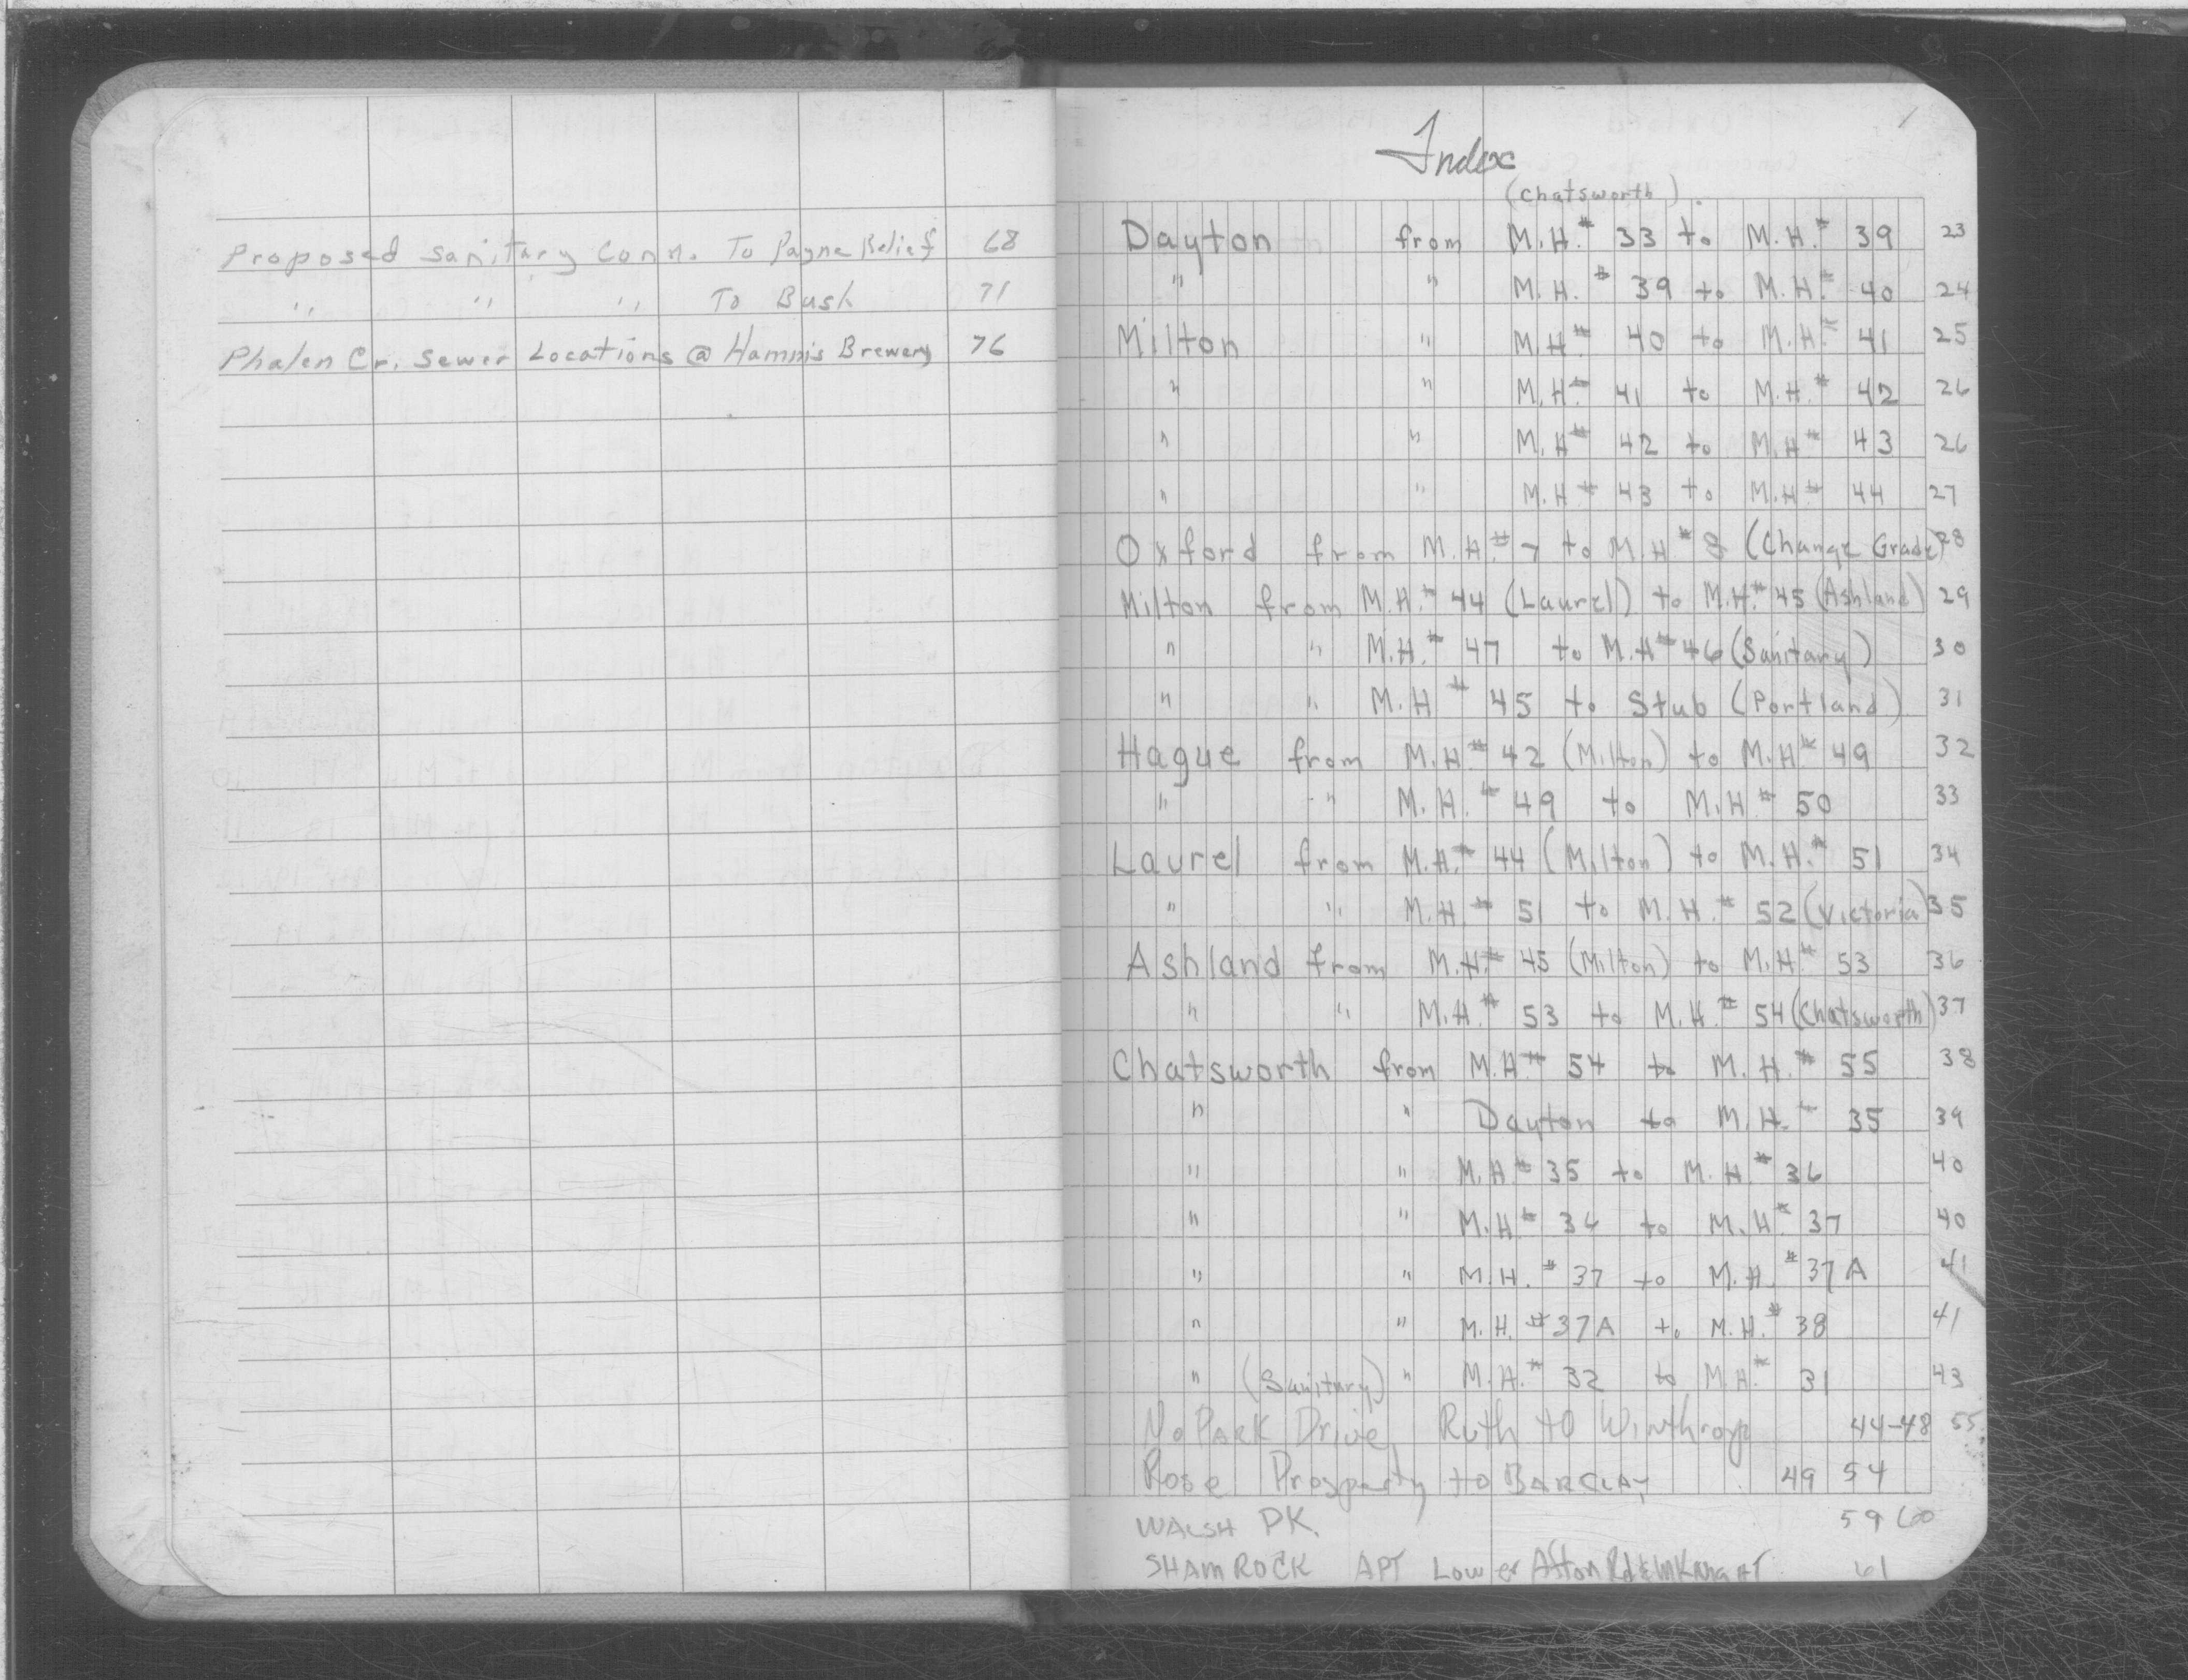 Proposed Sanitary Conn. To Payne Relief 68
" " " To Bush 71
Phalen Cr. Sewer Locations @ Hamm's Brewery 76
1
Index
(Chatsworth)
Dayton from M.H.# 33 to M.H.# 39 23
" " M.H.# 39 to M.H.# 40 24
Milton " M.H.# 40 to M.H.# 41 25
" " M.H.# 41 to M.H.# 42 26
" " M.H.# 42 to M.H.# 43 26
" " M.H.# 43 to M.H.# 44 27
Oxford from M.H.# 7 to M.H.# 8 (Change Grade) 28
Milton from M.H.# 44 (Laurel) to M.H.# 45 (Ashland) 29
" " M.H.# 47 to M.H.# 46 (Sanitary) 30
" " M.H.# 45 to Stub (Portland) 31
Hague from M.H.# 42 (Milton) to M.H.# 49 32
" " M.H.# 49 to M.H.# 50 33
Laurel from M.H.# 44 (Milton) to M.H.# 51 34
" " M.H.# 51 to M.H.# 52 (Victoria) 35
Ashland from M.H.# 45 (Milton) to M.H.# 53 36
" " M.H.# 53 to M.H.# 54 (Chatsworth) 37
Chatsworth from M.H.# 54 to M.H.# 55 38
" " Dayton to M.H.# 35 39
" " M.H.# 35 to M.H.# 36 40
" " M.H.# 36 to M.H.# 37 40
" " M.H.# 37 to M.H.# 37A 41
" " M.H.# 37A to M.H.# 38 41
" (Sanitary) " M.H.# 32 to M.H.# 31 43
No Park Drive Ruth to Winthrop 44-48 55
Rose Prosperty to BARCLAY 49 54
WALSH PK. 59 60
SHAMROCK APT Lower Afton Rd & McKnight 61